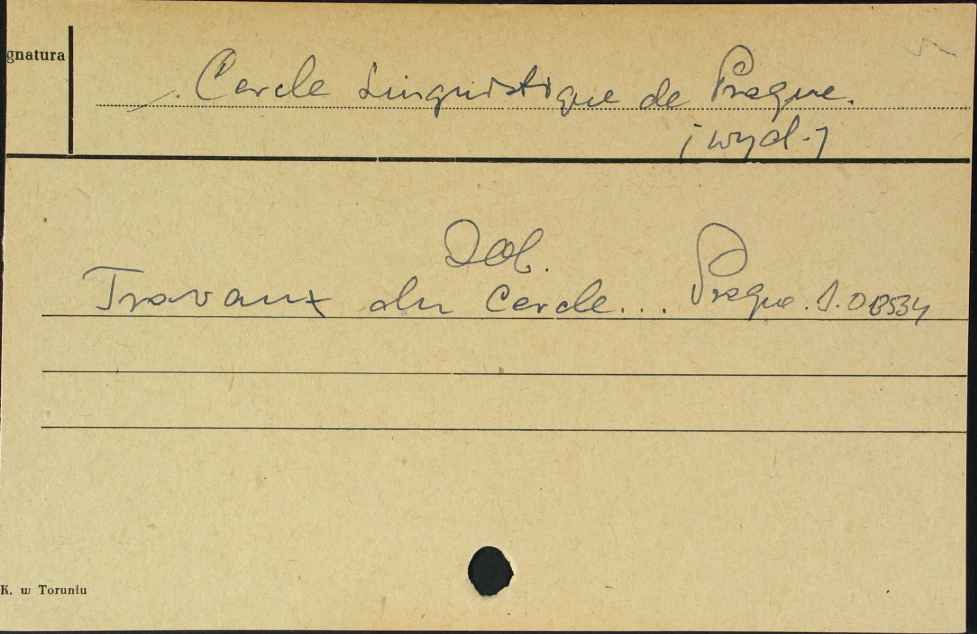 gnatura
Cercle Linguistique de Prague.
[wyd.]
Zob.
Travaux du Cercle... Prague. S.013534
K. w Toruniu